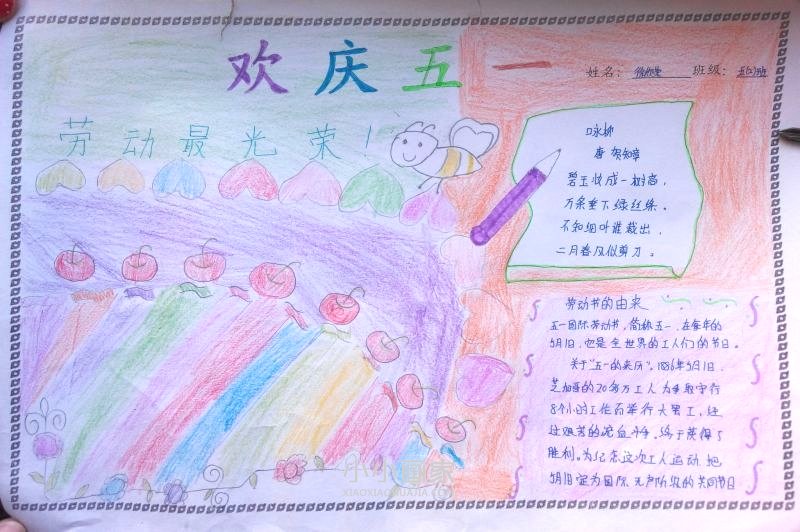 欢庆五一
姓名： 班级：
劳动最光荣！
咏柳
唐 贺知章
碧玉妆成一树高，
万条垂下绿丝绦。
不知细叶谁裁出，
二月春风似剪刀。
劳动节的由来
五一国际劳动节，简称五一，在每年的
5月1日，也是全世界的工人们的节日。
关于"五一的来历"，1886年5月1日，
芝加哥的20多万工人为争取实行
8个小时工作而举行大罢工，经
过艰苦的流血斗争，终于获得了
胜利。为纪念这次工人运动，把
5月1日定为国际无产阶级的共同节日
小小画家
XIAOXIAOHUAJIA.COM